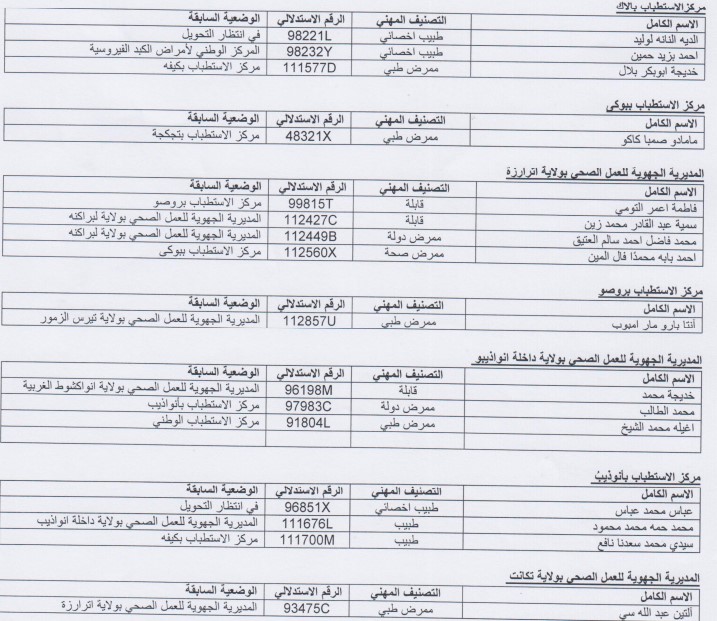 مركز الاستطباب بالاك
الاسم الكامل التصنيف المهني الرقم الاستدلالي الوضعية السابقة
الديه النانه لوليد طبيب اخصائي 98221L في انتظار التحويل
احمد يزيد حمين طبيب اخصائي 98232Y المركز الوطني لأمراض الكبد الفيروسية
خديجة ابوبكر بلال ممرض طبي 111577D مركز الاستطباب بكيفه
مركز الاستطباب ببوكى
الاسم الكامل التصنيف المهني الرقم الاستدلالي الوضعية السابقة
مامادو صمبا كاكو ممرض طبي 48321X مركز الاستطباب بتجكجة
المديرية الجهوية للعمل الصحي بولاية اترارزة
الاسم الكامل التصنيف المهني الرقم الاستدلالي الوضعية السابقة
فاطمة اعمر التومي قابلة 99815T مركز الاستطباب بروصو
سمية عبد القادر محمد زين قابلة 112427C المديرية الجهوية للعمل الصحي بولاية لبراكنه
محمد فاضل احمد سالم العتيق ممرض دولة 112449B المديرية الجهوية للعمل الصحي بولاية لبراكنه
احمد بابه محمدا فال المين ممرض صحة 112560X مركز الاستطباب ببوكى
مركز الاستطباب بروصو
الاسم الكامل التصنيف المهني الرقم الاستدلالي الوضعية السابقة
آنتا بارو مار امبوب ممرض طبي 112857U المديرية الجهوية للعمل الصحي بولاية تيرس الزمور
المديرية الجهوية للعمل الصحي بولاية داخلة انواذيبو
الاسم الكامل التصنيف المهني الرقم الاستدلالي الوضعية السابقة
خديجة محمد قابلة 96198M المديرية الجهوية للعمل الصحي بولاية انواكشوط الغربية
محمد الطالب ممرض دولة 97983C مركز الاستطباب بأنواذيب
اغيله محمد الشيخ ممرض طبي 91804L مركز الاستطباب الوطني
مركز الاستطباب بأنوذيبُ
الاسم الكامل التصنيف المهني الرقم الاستدلالي الوضعية السابقة
عباس محمد عباس طبيب اخصائي 96851X في انتظار التحويل
محمد حمه محمد محمود طبيب 111676L المديرية الجهوية للعمل الصحي بولاية داخلة انواذيب
سيدي محمد سعدنا نافع طبيب 111700M مركز الاستطباب بكيفه
المديرية الجهوية للعمل الصحي بولاية تكانت
الاسم الكامل التصنيف المهني الرقم الاستدلالي الوضعية السابقة
آلتين عبد الله سي ممرض طبي 93475C المديرية الجهوية للعمل الصحي بولاية اترارزة